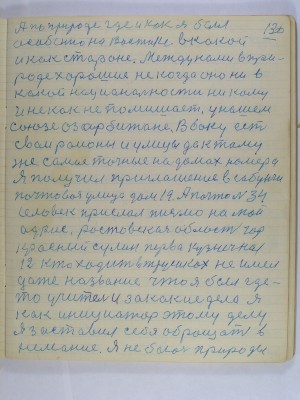 120
А по природе где и как я был
особенно на востоке в какой
и как стороне. Между нами в при-
роде хорошие некогда оно ни в
какой национальности никому
и некак не помишает. унашем
союзе озарбижане, В баку есть
свои районы и улицы да к тому
же самое точные на домах номера
Я получил приглашение в сабунчи
почтовая улица дом 19. А почто N 34
человек прислал письмо на мой
адрес, ростовская область гор
красный сулин перва кузнечная
12 кто ходит в трусиках не имел
даже название что я был где-
то учител и за какие дела я
как инициатор этому делу
я заставил себя обращать в
немание. Я не болея природы